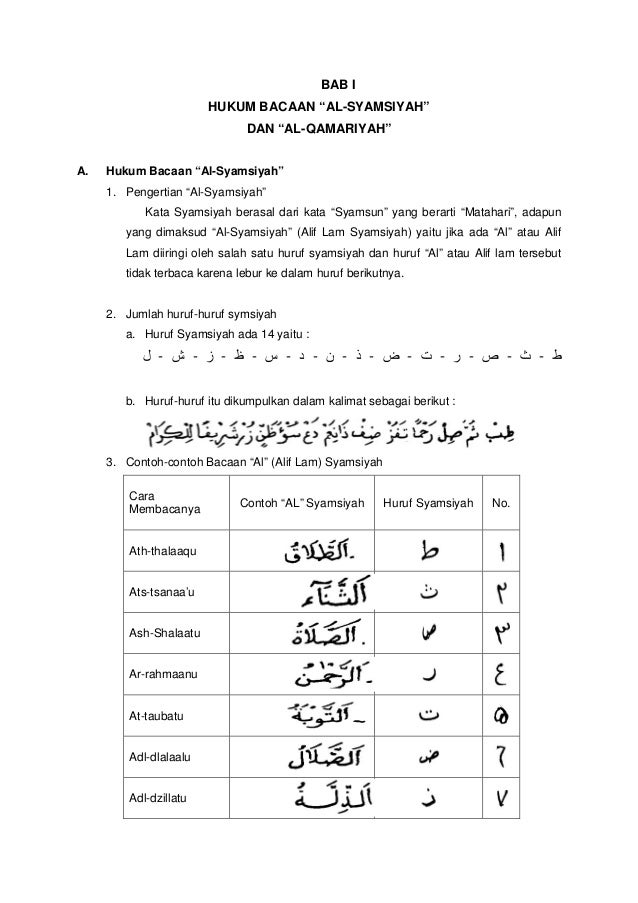 BAB I
HUKUM BACAAN “AL-SYAMSIYAH”
DAN “AL-QAMARIYAH”
A. Hukum Bacaan “Al-Syamsiyah”
1. Pengertian “Al-Syamsiyah”
Kata Syamsiyah berasal dari kata “Syamsun” yang berarti “Matahari”, adapun
yang dimaksud “Al-Syamsiyah” (Alif Lam Syamsiyah) yaitu jika ada “Al” atau Alif
Lam diiringi oleh salah satu huruf syamsiyah dan huruf “Al” atau Alif lam tersebut
tidak terbaca karena lebur ke dalam huruf berikutnya.
2. Jumlah huruf-huruf symsiyah
a. Huruf Syamsiyah ada 14 yaitu :
ط - ث - ص - ر - ت - ض - ذ - ن - د - س - ظ - ز - ش - ل
b. Huruf-huruf itu dikumpulkan dalam kalimat sebagai berikut :
طِبْ ثُمَّ صِلْ رَحِمًا تَفُزْ ضِفْ ذَانِعَمْ دَعْ سُوْءَظَنٍّ زُرْشَرِيْفًا لِلْكِرَامِ
3. Contoh-contoh Bacaan “Al” (Alif Lam) Syamsiyah
Cara Membacanya Contoh “AL” Syamsiyah Huruf Syamsiyah No.
Ath-thalaaqu اَلطَّلَاقُ ط ١
Ats-tsanaa’u اَلثَّنَآءُ ث ٢
Ash-Shalaatu اَلصَّلَاةُ ص ٣
Ar-rahmaanu اَلرَّحْمٰنُ ر ٤
At-taubatu اَلتَّوْبَةُ ت ٥
Adl-dlalaalu اَلضَّلَالُ ض ٦
Adl-dzillatu اَلذِّلَّةُ ذ ٧